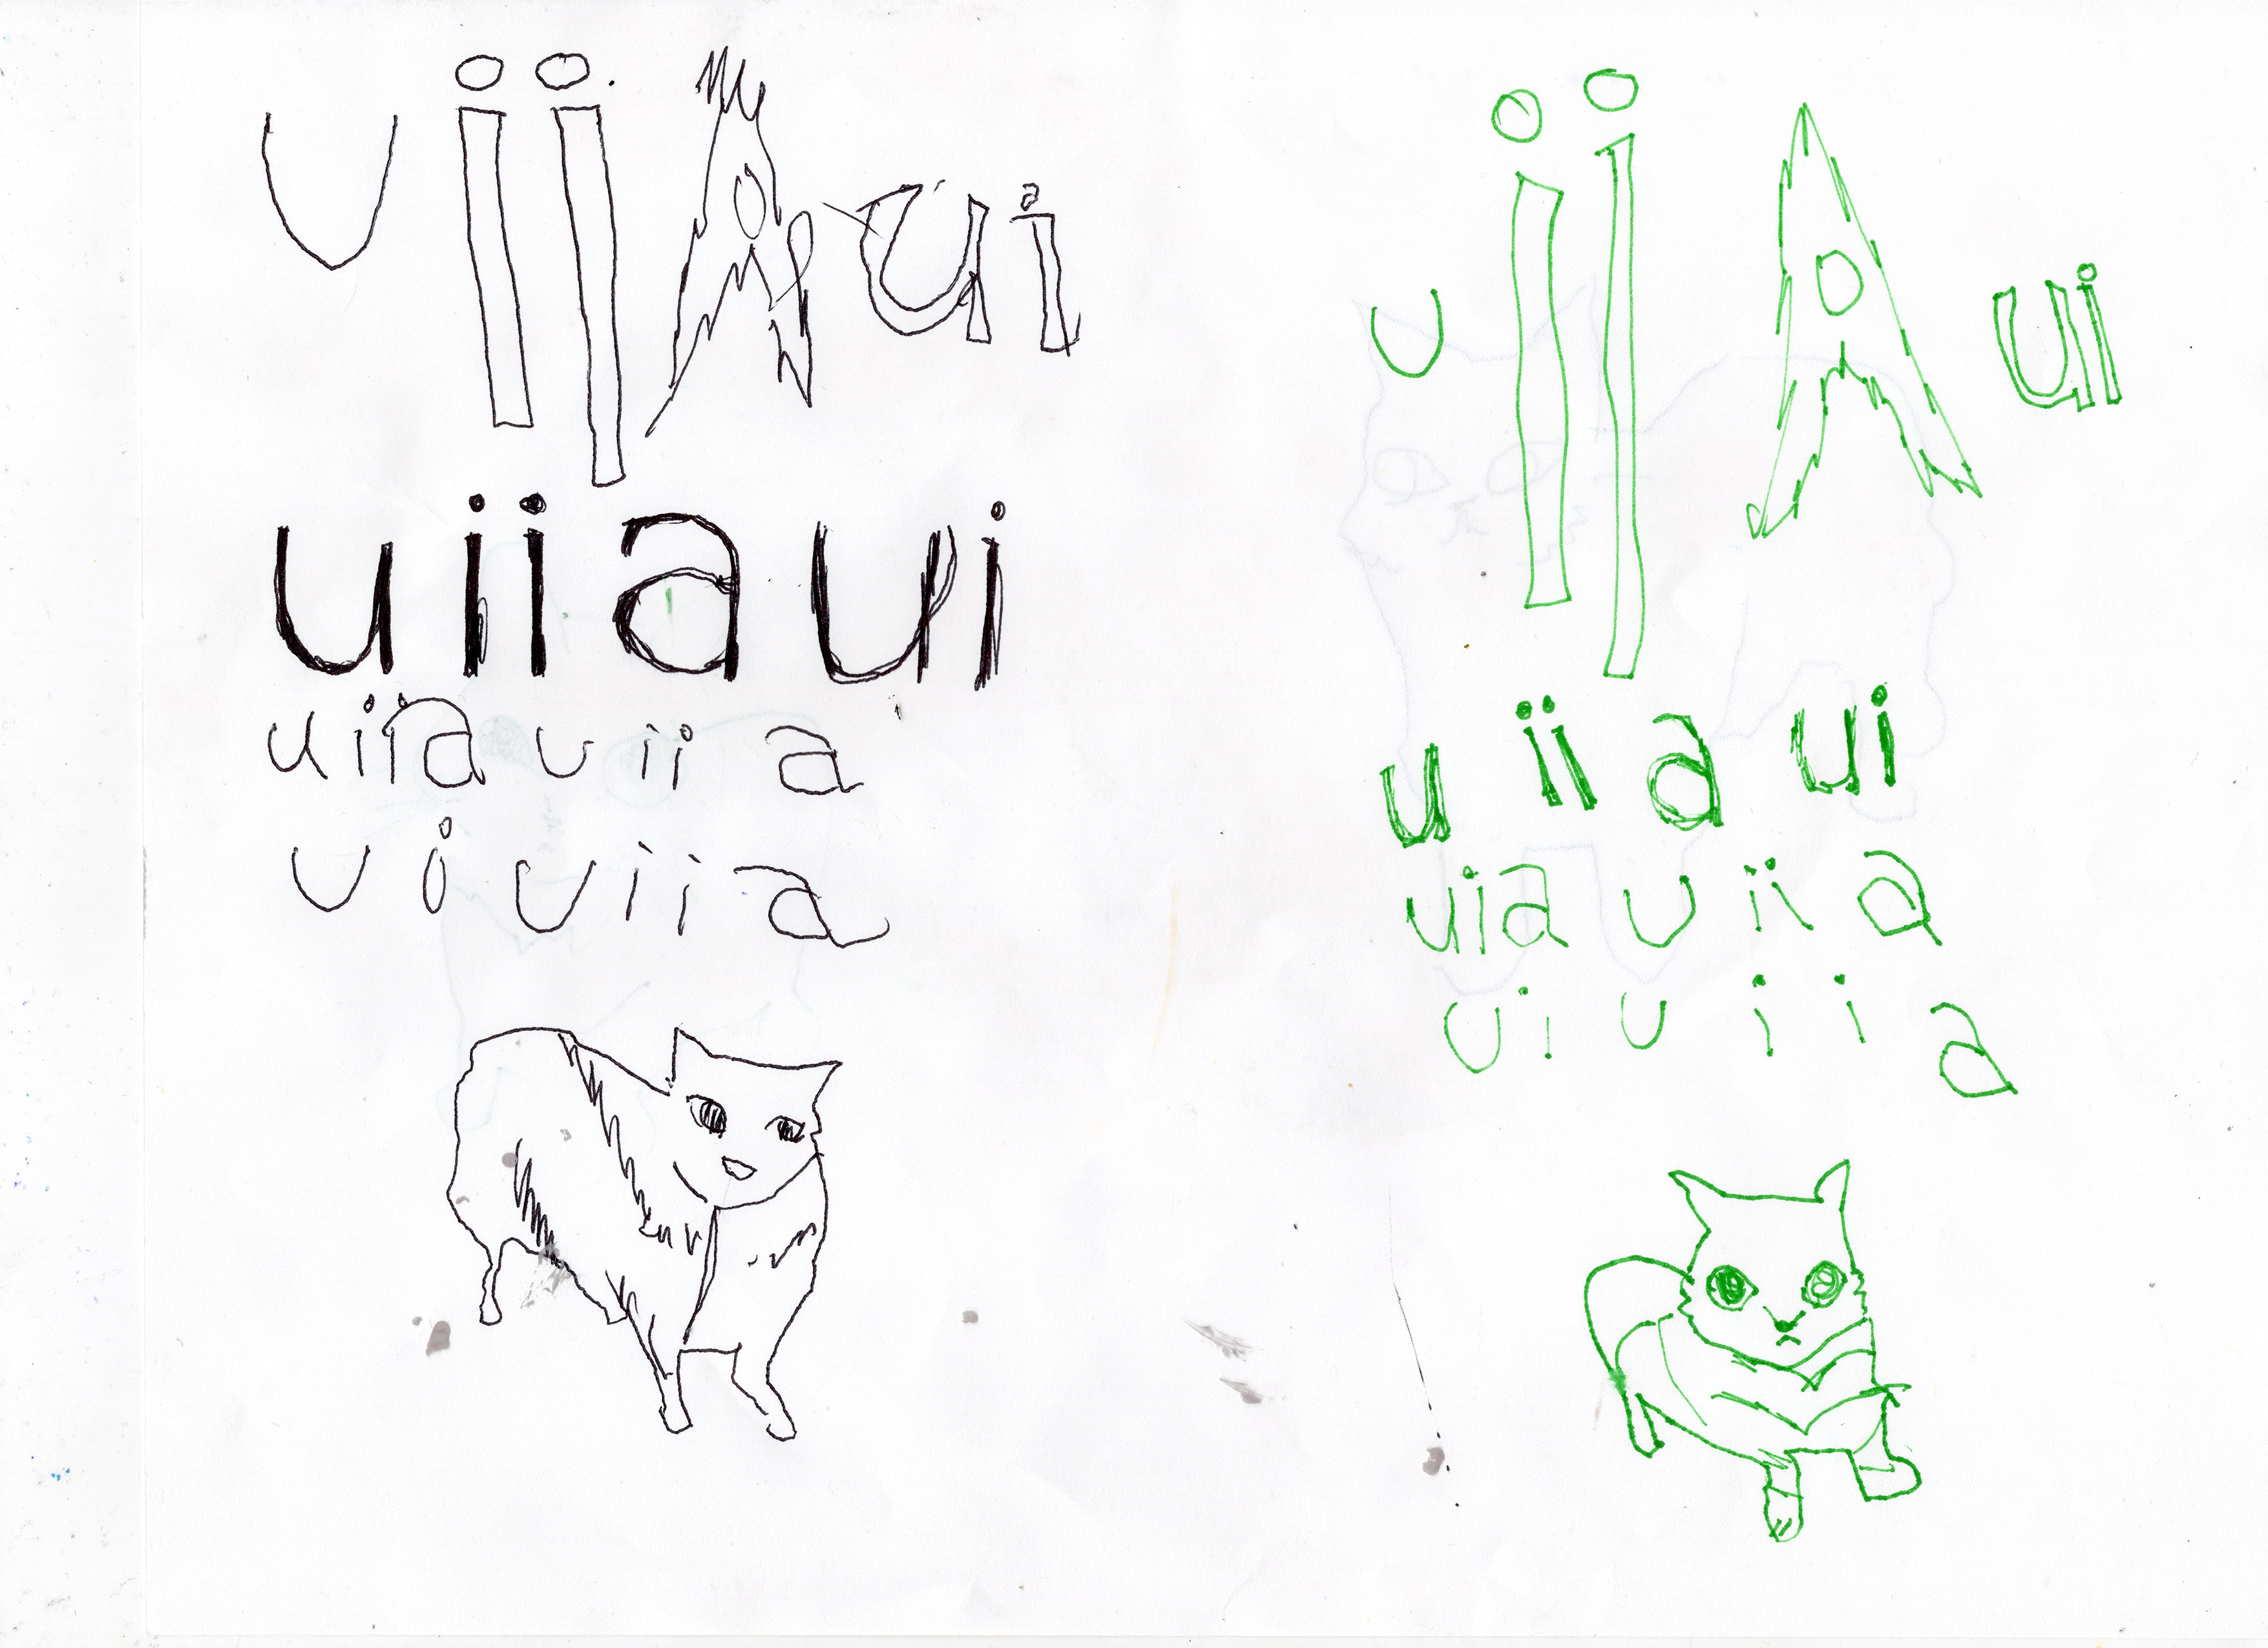 u i i A u i
u i i a u i
u i i a u i i a
u i u i i a
u i i A u i
u i i a u i
u i a u i i a
u i u i i a